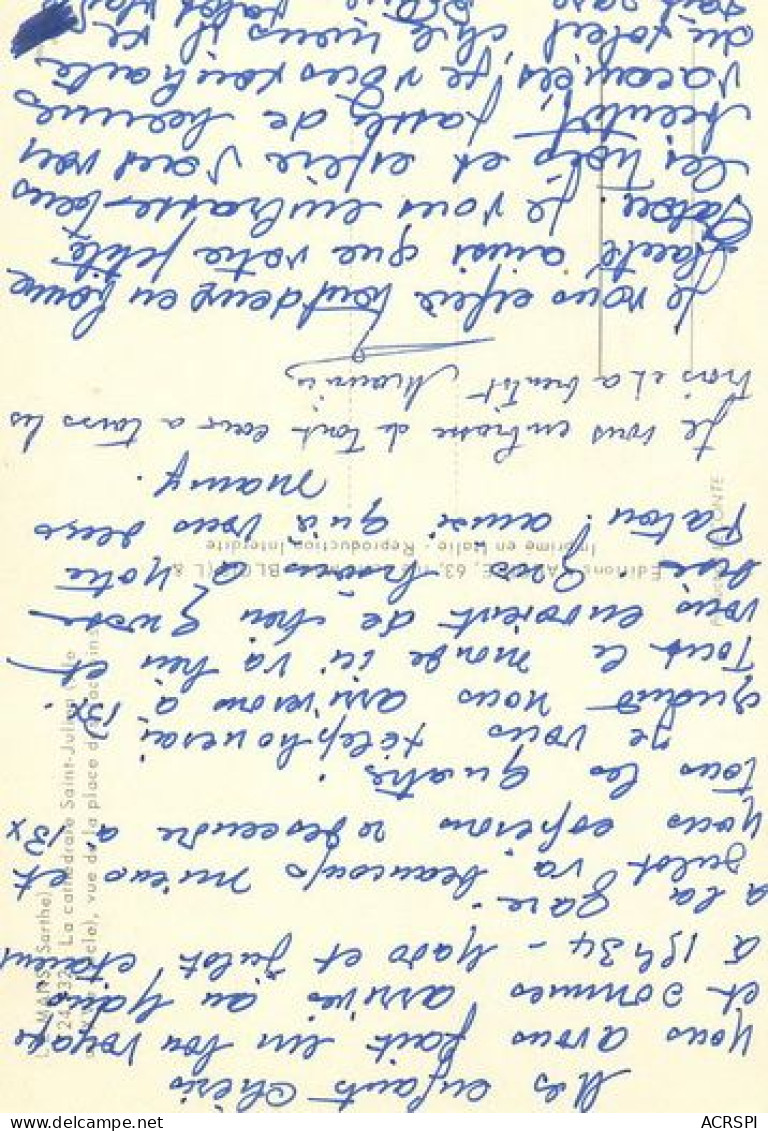 Mes enfants chéris
Nous avons fait un bon voyage
et sommes arrivés au Mans
à 19h34 - Mado et Julot étaient
à la gare.
Julot va beaucoup mieux et
nous espérons redescendre à 13x
tous les quatre.
Je vous téléphonerai
quand nous arriverons à 13x.
Tout le monde ici va bien et
vous envoient de bon Gustave
bises à notre
Patou aussi qu'à vous deux
Mamy.
Je vous embrasse de tout cœur a tous les
trois et a bientot Maurice
Je vous espère tout deux en bonne
santé ainsi que votre petite
Patou Je vous embrasse tous
les trois et espère vous voir
bientôt, passés de bonnes
vacances, je vous souhaite
du soleil, chez nous il se
fait rare
LE MANS (Sarthe)
La cathédrale Saint-Julien
vue de la place des Jacobins
Imprimé en Italie - Reproduction Interdite
ACRSPI